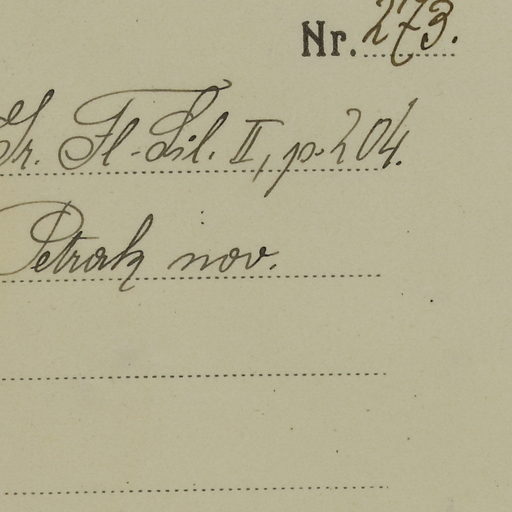 Nr. 273.
Gr. Fl. Sil. II, p. 204.
Petrak nov.